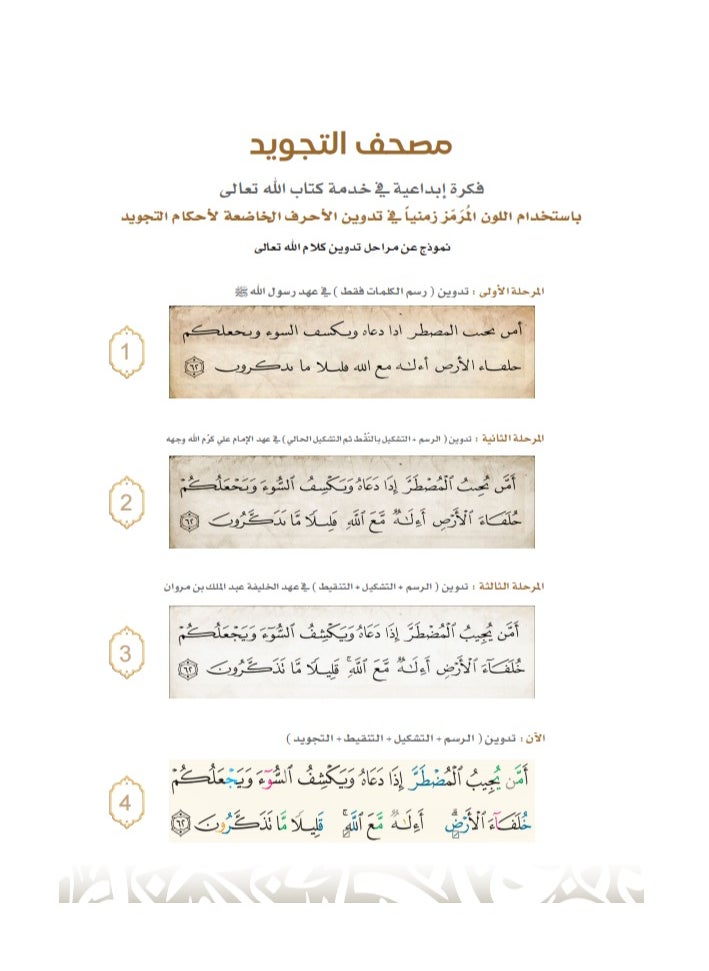 مصحف التجويد
فكرة إبداعية في خدمة كتاب الله تعالى
باستخدام اللون المُرَمّز زمنياً في تدوين الأحرف الخاضعة لأحكام التجويد
نموذج عن مراحل تدوين كلام الله تعالى
المرحلة الأولى : تدوين ( رسم الكلمات فقط ) في عهد رسول الله ﷺ
1
امں ىحىٮ المصطر ادا دعاه وىكسف السوء وىحعلكم
حلفاء الأرص أءلـٰه مع الله ڡلىلا ما ىدكروں ٦٢
المرحلة الثانية : تدوين ( الرسم + التشكيل بالنُقَط ثم التشكيل الحالي ) في عهد الإمام علي كرّم الله وجهه
2
أَمَّں ىُحِىٮُ ٱلْمُصْطَرَّ إِدَا دَعَاهُ وَىَكْسِفُ ٱلسُّوءَ وَىَحْعَلُكُمْ
حُلَفَاءَ ٱلْأَرْصِ أَءِلَـٰهٌ مَّعَ ٱللَّهِ ڡَلِىلًا مَّا ىَدَكَّرُوںَ ٦٢
المرحلة الثالثة : تدوين ( الرسم + التشكيل + التنقيط ) في عهد الخليفة عبد الملك بن مروان
3
أَمَّن يُجِيبُ ٱلْمُضْطَرَّ إِذَا دَعَاهُ وَيَكْشِفُ ٱلسُّوٓءَ وَيَجْعَلُكُمْ
خُلَفَآءَ ٱلْأَرْضِ أَءِلَـٰهٌ مَّعَ ٱللَّهِ ۚ قَلِيلًا مَّا تَذَكَّرُونَ ٦٢
الآن : تدوين ( الرسم + التشكيل + التنقيط + التجويد )
4
أَمَّن يُجِيبُ ٱلْمُضْطَرَّ إِذَا دَعَاهُ وَيَكْشِفُ ٱلسُّوٓءَ وَيَجْعَلُكُمْ
خُلَفَآءَ ٱلْأَرْضِ ۗ أَءِلَـٰهٌ مَّعَ ٱللَّهِ ۚ قَلِيلًا مَّا تَذَكَّرُونَ ٦٢